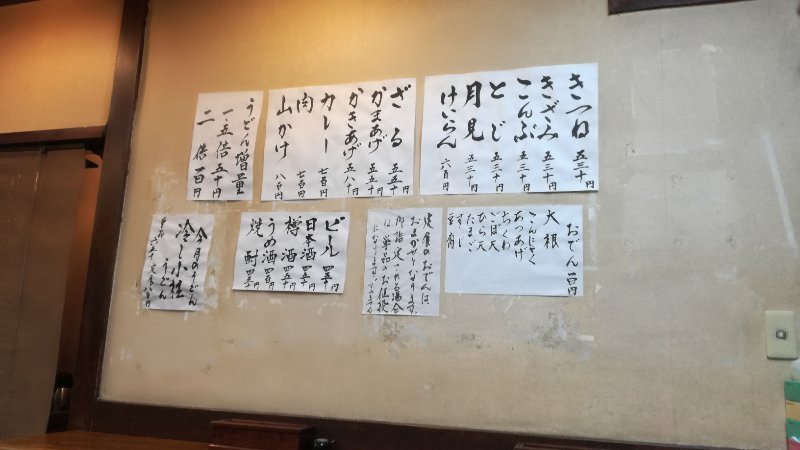 きつね 五三十円
きざみ 五三十
こんぶ 五三十
とじ 五三十
月見 五三十
けいらん 六百円
ざる 五五十円
かまあげ 五五十
かきあげ 五八十
カレー 七百円
肉 七百円
山かけ 八百円
うどん増量
一・五倍 五十円
二倍 百円
おでん 百円
大根
こんにゃく
あつあげ
ちくわ
ごぼ天
ひら天
たまご
すじ
定食のおでんは
おまかせになります。
御指定される場合
は単品のお値段
になります。
ビール
日本酒
樽酒
うめ酒
焼酎
今月のうどん
冷し小柱
うどん